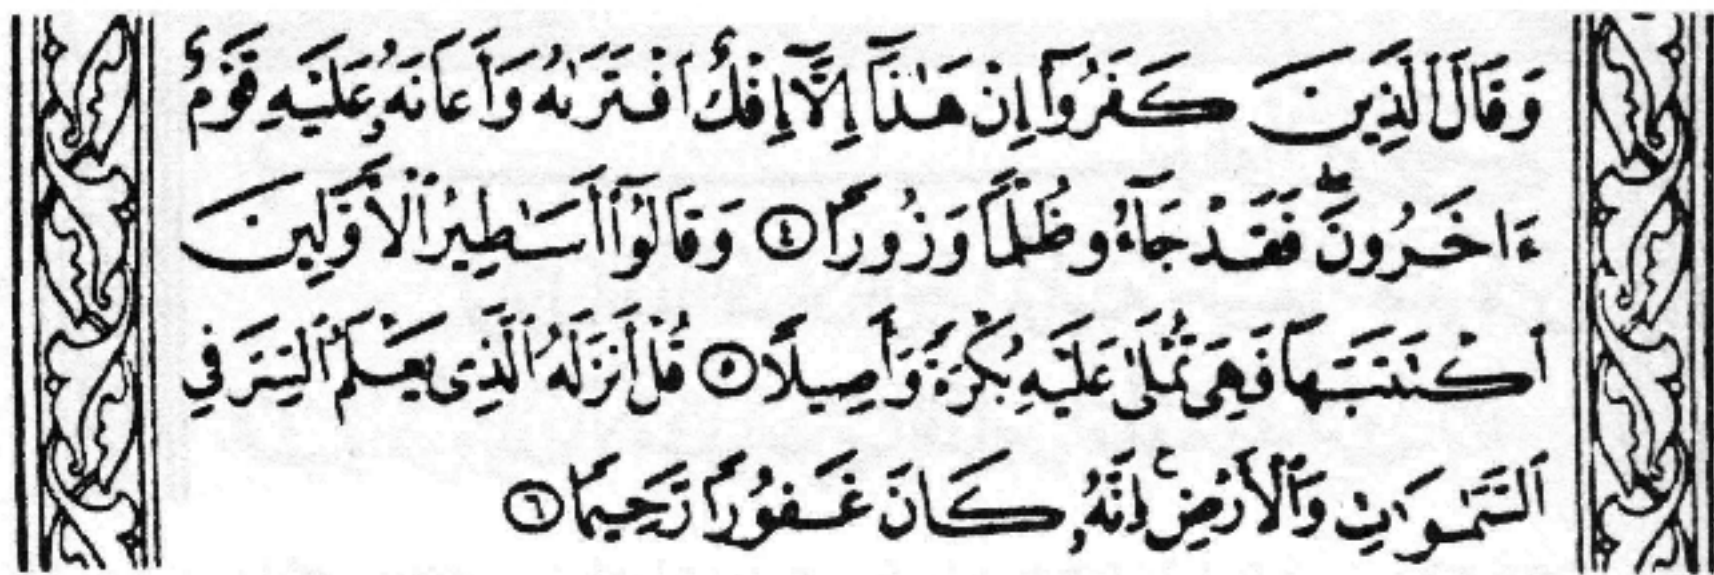 وَقَالَ ٱلَّذِينَ كَفَرُوٓا۟ إِنْ هَـٰذَآ إِلَّآ إِفْكٌ ٱفْتَرَىٰهُ وَأَعَانَهُۥ عَلَيْهِ قَوْمٌ
ءَاخَرُونَ ۖ فَقَدْ جَآءُو ظُلْمًا وَزُورًا ٤ وَقَالُوٓا۟ أَسَـٰطِيرُ ٱلْأَوَّلِينَ
ٱكْتَتَبَهَا فَهِىَ تُمْلَىٰ عَلَيْهِ بُكْرَةً وَأَصِيلًا ٥ قُلْ أَنزَلَهُ ٱلَّذِى يَعْلَمُ ٱلسِّرَّ فِى
ٱلسَّمَـٰوَٰتِ وَٱلْأَرْضِ ۚ إِنَّهُۥ كَانَ غَفُورًا رَّحِيمًا ٦